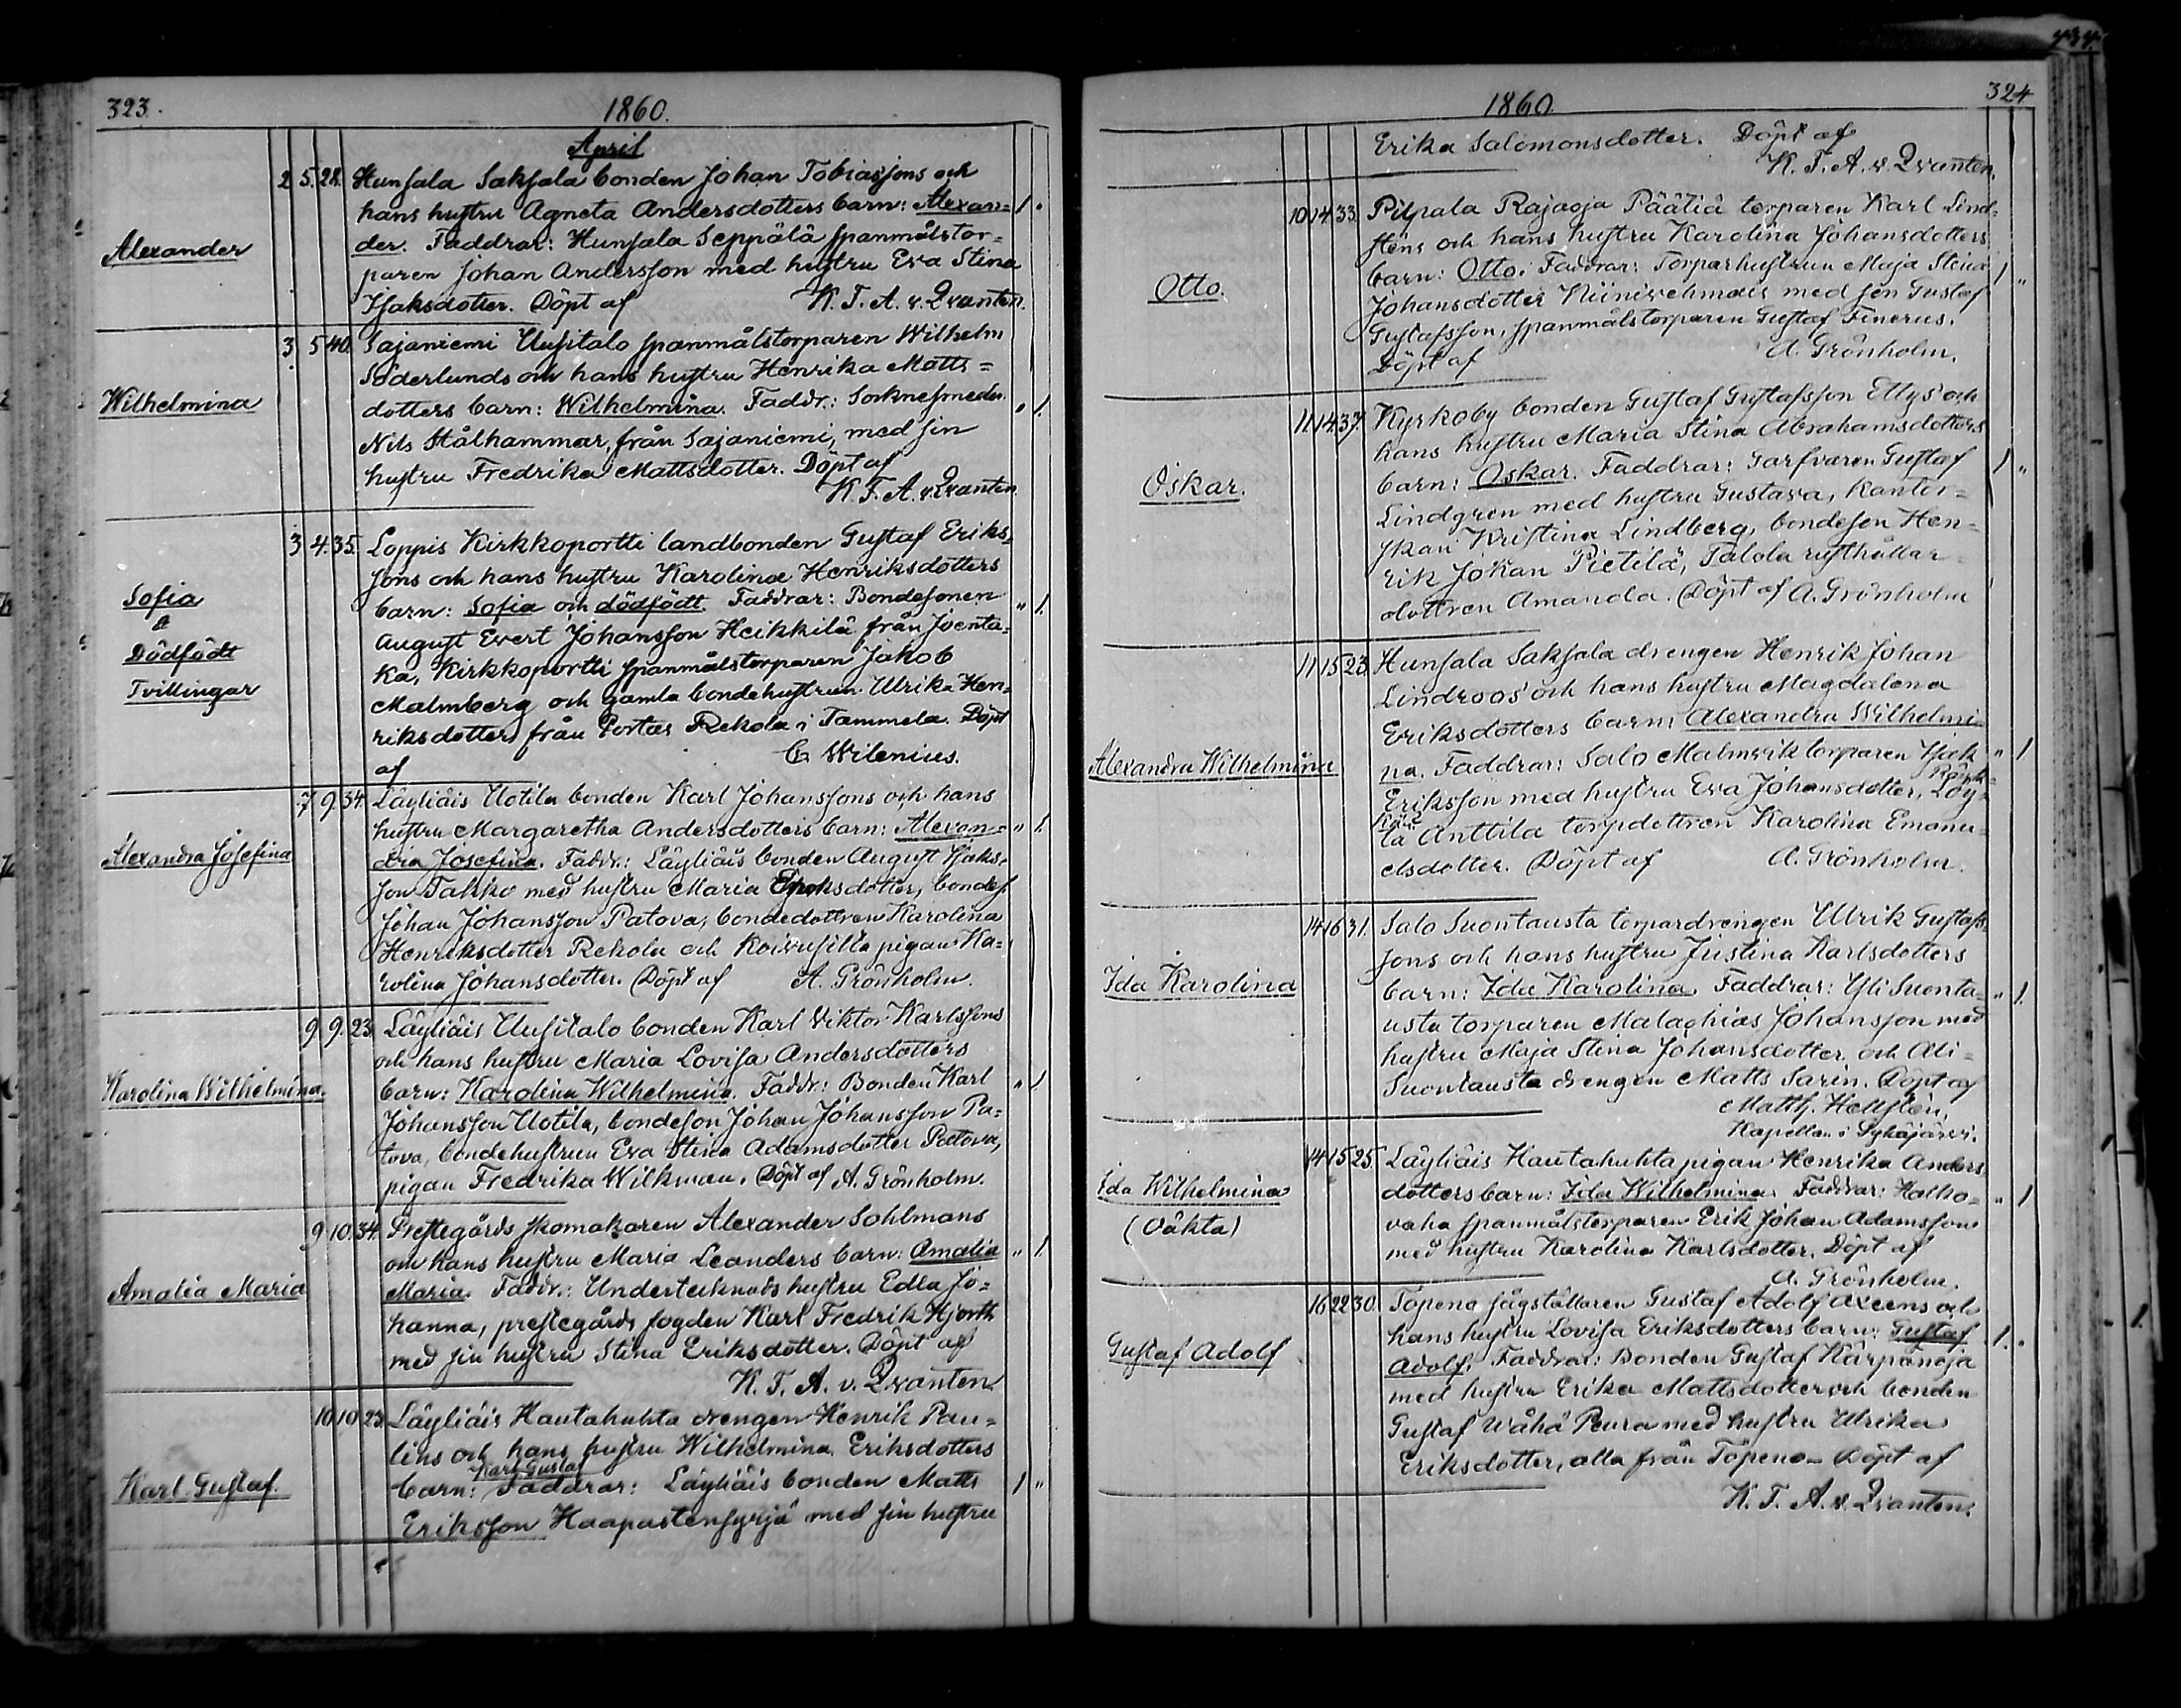 323.
1860.
April
Alexander
2 5. 28. Hunsala Saksala bonden Johan Tobiassons och
hans hustru Agneta Andersdotters barn: Alexan= 1 .
der. Faddrar: Hunsala Seppälä spanmålstor=
paren Johan Andersson med hustru Eva Stina
Isaksdotter. Döpt af K. T. A. v. Qvanten.
Wilhelmina
3. 5 40. Sajaniemi Uusitalo spanmålstorparen Wilhelm
Söderlunds och hans hustru Henrika Matts=
dotters barn: Wilhelmina. Faddr.: Socknesmeden „ 1.
Nils Stålhammar, från Sajaniemi, med sin
hustru Fredrika Mattsdotter. Döpt af
K. T. A. v. Qvanten.
Sofia
&
Dödfödt
Tvillingar
3 4. 35. Loppis Kirkkoportti landbonden Gustaf Eriks=
sons och hans hustru Karolina Henriksdotters
barn: Sofia och dödfödt. Faddrar: Bondesonen „ 1.
August Evert Johansson Heikkilä från Joenta=
ka, Kirkkoportti spanmålstorparen Jakob
Malmberg och gamla bondehustrun Ulrika Hen=
riksdotter från Portas Rekola i Tammela. Döpt
af C. Wilenius.
Alexandra Josefina
7 9. 34. Läyliäis Uotila bonden Karl Johanssons och hans
hustru Margaretha Andersdotters barn: Alexan= „ 1.
dra Josefina. Faddr.: Läyliäis bonden August Isaks=
son Takko med hustru Maria dotter, bondes
Johan Johansson Patova, bondedottren Karolina
Henriksdotter Rekola och Koivusilla pigan Ka=
rolina Johansdotter. Döpt af A. Grönholm.
Karolina Wilhelmina.
9. 9. 23. Läyliäis Uusitalo bonden Karl Viktor Karlssons
och hans hustru Maria Lovisa Andersdotters
barn: Karolina Wilhelmina. Faddr.: Bonden Karl „ 1
Johansson Uotila, bondeson Johan Johansson Pa=
tova, bondehustrun Eva Stina Adamsdotter Patova,
pigan Fredrika Wilkman. Döpt af A. Grönholm.
Amalia Maria
9 10. 34. Prestegårds skomakaren Alexander Sohlmans
och hans hustru Maria Leanders barn: Amalia „ 1.
Maria. Faddr.: Undertecknads hustru Edla Jo=
hanna, prestegårds fogden Karl Fredrik Hjorth
med sin hustru Stina Eriksdotter. Döpt af
K. T. A. v. Qvanten.
Karl Gustaf.
10 10 23. Läyliäis Hautahuhta drengen Henrik Pau=
lins och hans hustru Wilhelmina Eriksdotters
Karl Gustaf
barn: Faddrar: Läyliäis bonden Matts 1 „
Eriksson Haapastensyrjä med sin hustru
324
1860.
Erika Salomonsdotter. Döpt af
K. T. A. v. Qvanten.
Otto.
10 14. 33. Pilpala Rajaoja Päätiä torparen Karl Lind=
sténs och hans hustru Karolina Johansdotters
barn: Otto. Faddrar: Torparhustrun Maja Stina 1 „
Johansdotter Niinivehmais med son Gustaf
Gustafsson, spanmålstorparen Gustaf Finerus.
Döpt af A. Grönholm.
Oskar.
11. 14. 37. Kyrkoby bonden Gustaf Gustafsson Ellys och
hans hustru Maria Stina Abrahamsdotters
barn: Oskar. Faddrar: Garfvaren Gustaf 1 „
Lindgren med hustru Gustava, Kantor=
skan Kristina Lindberg, bondeson Hen=
rik Johan Pietilä, Talola rusthållar=
dottren Amanda. Döpt af A. Grönholm
Alexandra Wilhelmina
11 15 23. Hunsala Saksala drengen Henrik Johan
Lindroos och hans hustru Magdalena
Eriksdotters barn: Alexandra Wilhelmi=
na. Faddrar: Salo Malmvik torparen Isak „ 1
Eriksson med hustru Eva Johansdotter,
la Anttila torpdottren Karolina Emanu=
elsdotter. Döpt af A. Grönholm.
Ida Karolina
14 16 31. Salo Suontausta torpardrengen Ulrik Gustafs=
sons och hans hustru Justina Karlsdotters
barn: Ida Karolina. Faddrar: Yli Suonta= „ 1.
usta torparen Malachias Johansson med
hustru Maja Stina Johansdotter och Ali=
Suontausta drengen Matts Sarin. Döpt af
Matth. Hellstén,
Kapellan i Sykäjärvi.
Ida Wilhelmina
(Oäkta)
14 15 25. Läyliäis Hautahuhta pigan Henrika Anders
dotters barn: Ida Wilhelmina. Faddrar: Hatko= „ 1
vaha spanmålstorparen Erik Johan Adamsson
med hustru Karolina Karlsdotter. Döpt af
A. Grönholm.
Gustaf Adolf
16 22 30. Topeno sågställaren Gustaf Adolf Axeens och
hans hustru Lovisa Eriksdotters barn: Gustaf 1. „
Adolf. Faddrar: Bonden Gustaf Kärpänoja
med hustru Erika Mattsdotter och bonden
Gustaf Wähä Peura med hustru Ulrika
Eriksdotter, alla från Topeno. Döpt af
K. T. A. v. Qvanten.